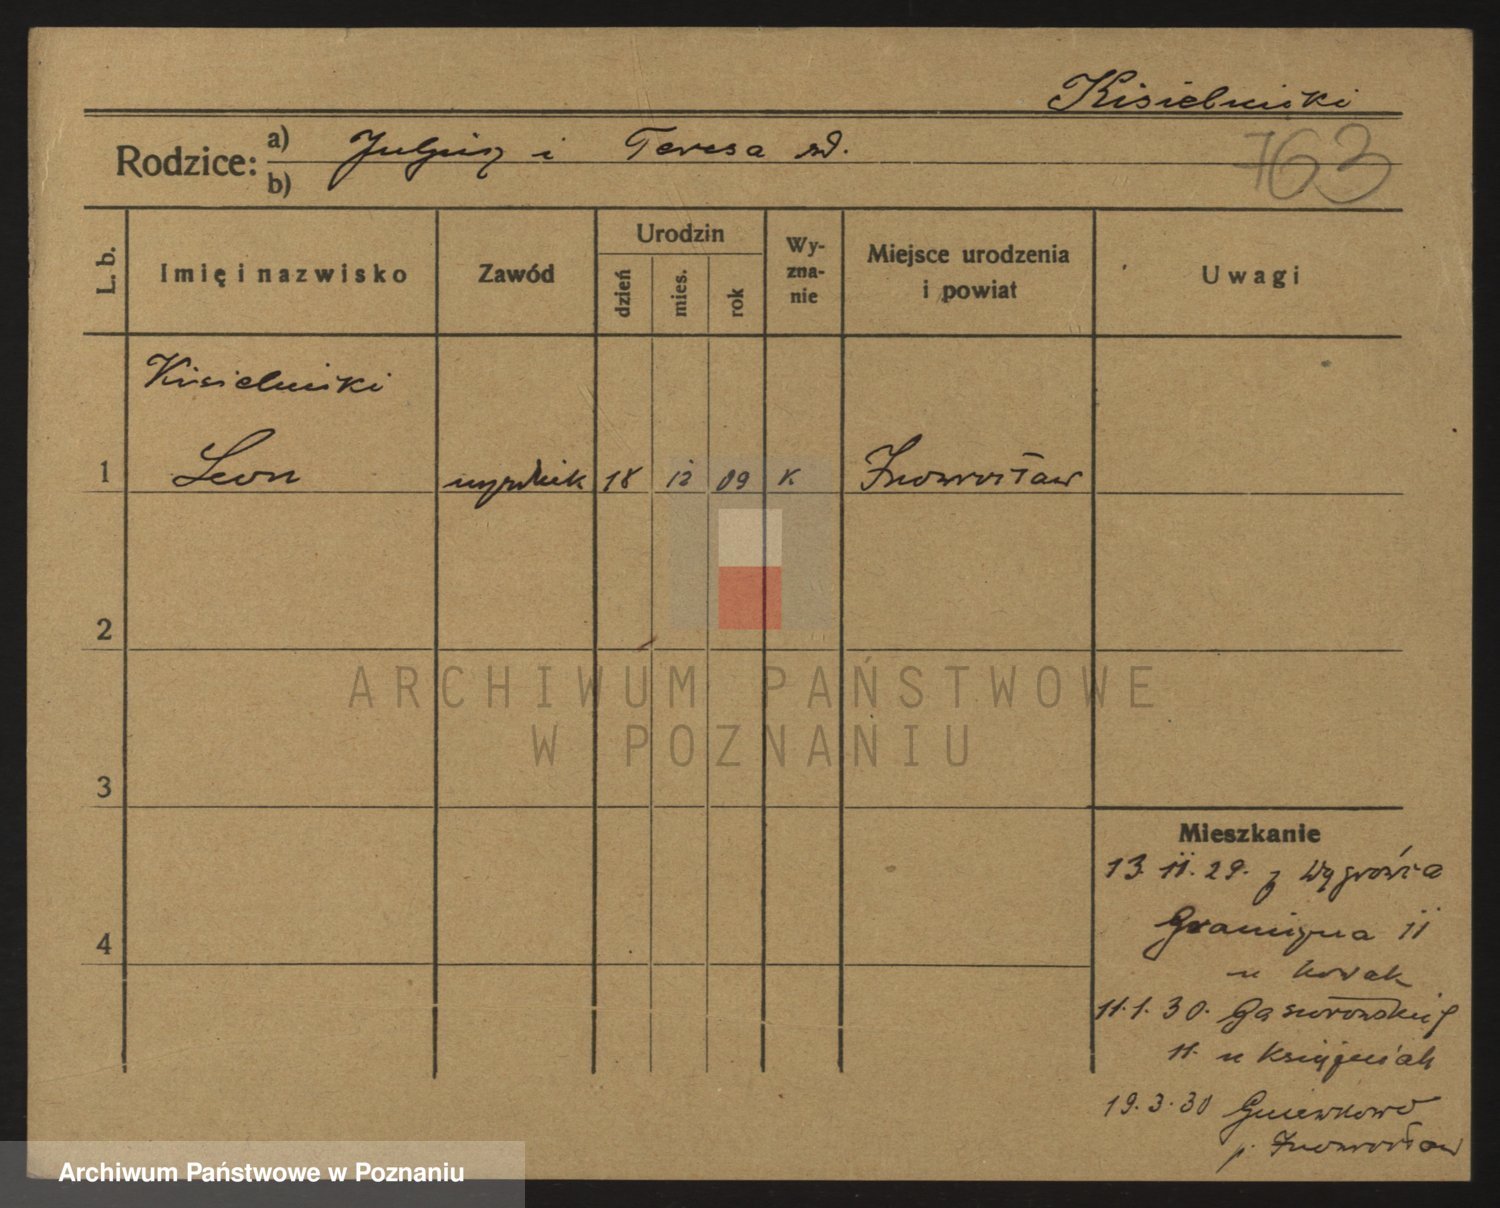 Kisielniński
763
Rodzice: a) Juljusz i Teresa
b)
L. b. Imię i nazwisko Zawód Urodzin dzień mies. rok Wy-zna-nie Miejsce urodzenia i powiat Uwagi
Kisielniński
1 Leon 18 12 09 K Inowrocław
2
ARCHIWUM PAŃSTWOWE
W POZNANIU
3
Mieszkanie
13. 11. 29. z Wągrówca
4 Graniczna 11
u Nowak
11. 1. 30. Gąsiorowskich
11. u
19. 3. 30 Gniewkowo
p. Inowrocław
Archiwum Państwowe w Poznaniu